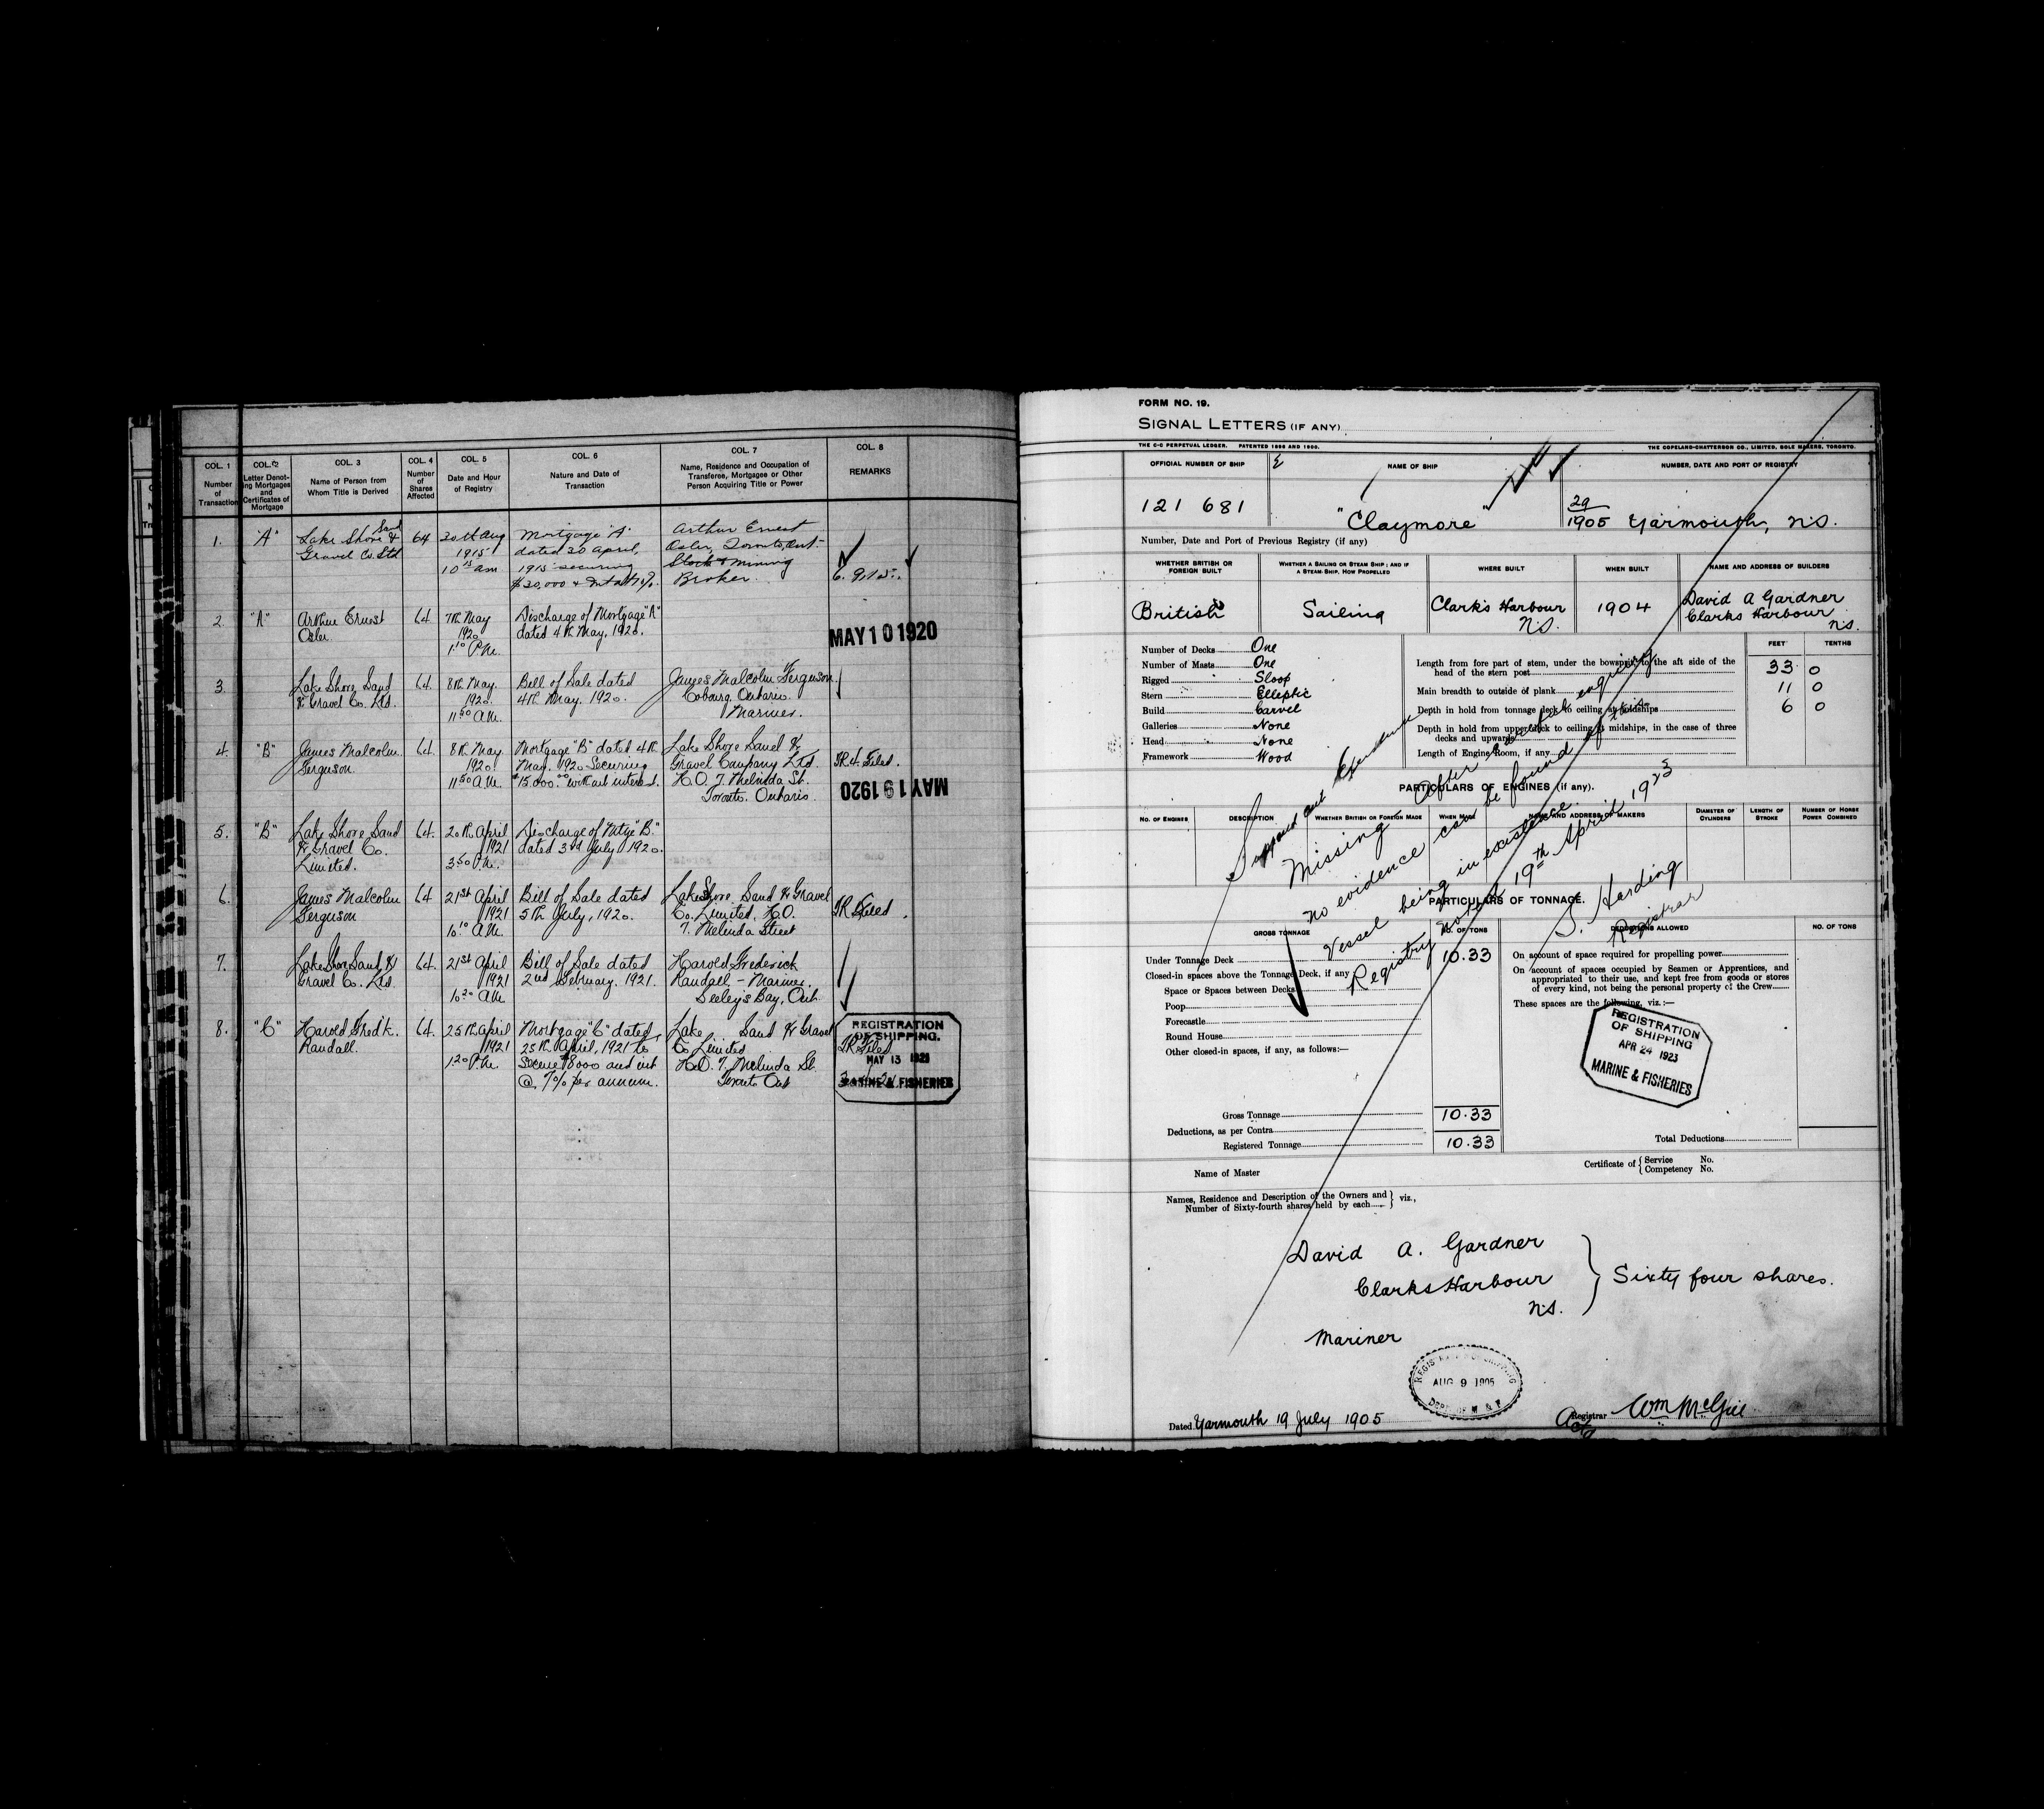 COL. 1
Number
of
Transaction
COL. 2
Letter Denot-
ing Mortgages
and
Certificates of
Mortgage
COL. 3
Name of Person from
Whom Title is Derived
COL. 4
Number
of
Shares
Affected
COL. 5
Date and Hour
of Registry
COL. 6
Nature and Date of
Transaction
COL. 7
Name, Residence and Occupation of
Transferee, Mortgagee or Other
Person Acquiring Title or Power
COL. 8
REMARKS
1.
"A"
Lake Shore Sand &
Gravel Co. Ltd
64
20th Aug
1915
10 15 am
Mortgage "A"
dated 20 April,
1915 securing
$30,000 & Int at 7%.
Arthur Ernest
Osler, Toronto, Ont.
Stock & Mining
Broker.
2.
"A"
Arthur Ernest
Osler.
64
7th May
1920
1 10 P.M.
Discharge of Mortgage "A"
dated 4th May, 1920.
MAY 10 1920
3.
Lake Shore Sand
& Gravel Co. Ltd.
64.
8th May
1920.
11 50 A.M.
Bill of Sale dated
4th May, 1920.
James Malcolm Ferguson
Cobourg, Ontario.
Mariner.
4.
"B"
James Malcolm
Ferguson.
64.
8th May
1920
11 50 A.M.
Mortgage "B" dated 4th
May, 1920 Securing
$15000.00 without interest.
Lake Shore Sand &
Gravel Company Ltd.
H.O. 7 Melinda St.
Toronto. Ontario.
Filed.
MAY 19 1920
5.
"B"
Lake Shore Sand
& Gravel Co.
Limited.
64.
20th April
1921
3 50 P.M.
Discharge of Mtge "B."
dated 3rd July 1920.
6.
James Malcolm
Ferguson
64
21st April
1921
10 10 A.M.
Bill of Sale dated
5th July, 1920.
Lake Shore Sand & Gravel
Co. Limited, H.O.
7. Melinda Street
Filed
7.
Lake Shore Sand &
Gravel Co. Ltd.
64.
21st April
1921
10 20 A.M.
Bill of Sale dated
2nd February. 1921.
Harold Frederick
Randall - Mariner.
Seeley's Bay, Ont.
8.
"C"
Harold Fred'k.
Randall.
64.
25th April
1921
1 20 P.M.
Mortgage "C" dated
25th April, 1921 to
secure $8000 and int
@ 7% per annum.
Lake Sand & Gravel
Co Limited
H.O. 7. Melinda St.
Toronto Ont
REGISTRATION
OF SHIPPING.
MAY 13 1921
MARINE & FISHERIES
FORM NO. 19.
SIGNAL LETTERS (IF ANY)
THE C-C PERPETUAL LEDGER. PATENTED 1896 AND 1900.
THE COPELAND-CHATTERSON CO., LIMITED, SOLE MAKERS, TORONTO.
OFFICIAL NUMBER OF SHIP
NAME OF SHIP
NUMBER, DATE AND PORT OF REGISTRY
121 681
"Claymore"
29
1905 Yarmouth, N.S.
Number, Date and Port of Previous Registry (if any)
WHETHER BRITISH OR
FOREIGN BUILT
WHETHER A SAILING OR STEAM SHIP; AND IF
A STEAM SHIP, HOW PROPELLED
WHERE BUILT
WHEN BUILT
NAME AND ADDRESS OF BUILDERS
British
Sailing
Clark's Harbour
N.S.
1904
David A Gardner
Clarks Harbour
N.S.
Number of Decks One
Number of Masts One
Rigged Sloop
Stern Elleptic
Build Carvel
Galleries None
Head None
Framework Wood
FEET
TENTHS
Length from fore part of stem, under the bowsprit, to the aft side of the
head of the stern post
33 0
Main breadth to outside of plank
11 0
Depth in hold from tonnage deck to ceiling at midships
6 0
Depth in hold from upper deck to ceiling at midships, in the case of three
decks and upwards
Length of Engine Room, if any
PARTICULARS OF ENGINES (if any).
NO. OF ENGINES
DESCRIPTION
WHETHER BRITISH OR FOREIGN MADE
WHEN MADE
NAME AND ADDRESS OF MAKERS
DIAMETER OF
CYLINDERS
LENGTH OF
STROKE
NUMBER OF HORSE
POWER COMBINED
Missing After careful enquiry
no evidence can be found of this
Vessel being in existence.
Registry closed 19th April 1923
S. Harding
Registrar
PARTICULARS OF TONNAGE.
GROSS TONNAGE
NO. OF TONS
DEDUCTIONS ALLOWED
NO. OF TONS
Under Tonnage Deck
10.33
Closed-in spaces above the Tonnage Deck, if any
Space or Spaces between Decks
Poop
Forecastle
Round House
Other closed-in spaces, if any, as follows:—
On account of space required for propelling power
On account of spaces occupied by Seamen or Apprentices, and
appropriated to their use, and kept free from goods or stores
of every kind, not being the personal property of the Crew
These spaces are the following, viz.:—
REGISTRATION
OF SHIPPING
APR 24 1923
MARINE & FISHERIES
Gross Tonnage
10.33
Deductions, as per Contra
Registered Tonnage
10.33
Total Deductions
Name of Master
Certificate of { Service No.
Competency No.
Names, Residence and Description of the Owners and
Number of Sixty-fourth shares held by each } viz.,
David A. Gardner
Clarks Harbour
N.S.
Sixty four shares.
Mariner
AUG 9 1905
Dated Yarmouth 19 July 1905
Registrar
Wm McGill